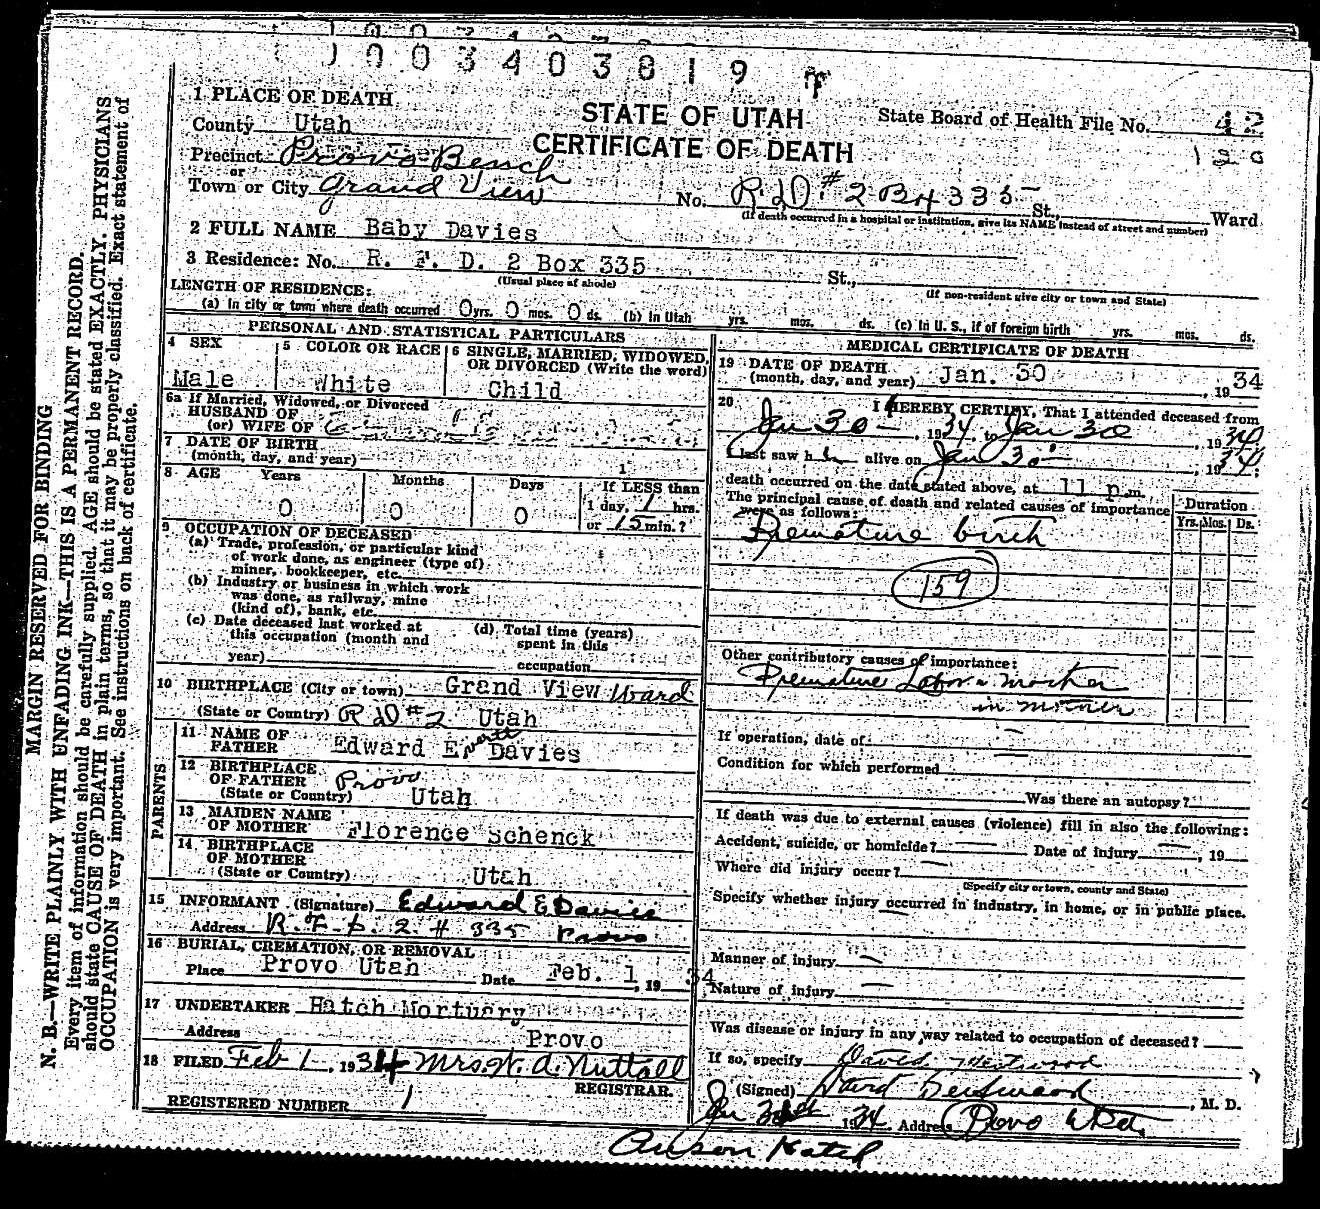 003403819
1 PLACE OF DEATH
STATE OF UTAH
CERTIFICATE OF DEATH
State Board of Health File No. 42
120
County Utah
Precinct Provo Bench
or
Town or City Grand View No. R.D # 2 B# 335 St., Ward
(If death occurred in a hospital or institution, give its NAME instead of street and number)
2 FULL NAME Baby Davies
3 Residence: No. R. F. D. 2 Box 335 St.,
(Usual place of abode) (If non-resident give city or town and State)
LENGTH OF RESIDENCE:
(a) In city or town where death occurred 0 yrs. 0 mos. 0 ds. (b) in Utah yrs. mos. ds. (c) In U. S., if of foreign birth yrs. mos. ds.
PERSONAL AND STATISTICAL PARTICULARS
4 SEX
Male
5 COLOR OR RACE
White
6 SINGLE, MARRIED, WIDOWED,
OR DIVORCED (Write the word)
Child
6a If Married, Widowed, or Divorced
HUSBAND OF
(or) WIFE OF
7 DATE OF BIRTH
(month, day, and year)
8 AGE Years Months Days If LESS than
0 0 0 1 day, 1 hrs.
or 15 min.?
9 OCCUPATION OF DECEASED
(a) Trade, profession, or particular kind
of work done, as engineer (type of)
miner, bookkeeper, etc.
(b) Industry or business in which work
was done, as railway, mine
(kind of), bank, etc.
(c) Date deceased last worked at
this occupation (month and
year)
(d) Total time (years)
spent in this
occupation
10 BIRTHPLACE (City or town) Grand View Ward
(State or Country) R D # 2 Utah
PARENTS
11 NAME OF
FATHER Edward Everett Davies
12 BIRTHPLACE
OF FATHER Provo
(State or Country) Utah
13 MAIDEN NAME
OF MOTHER Florence Schenck
14 BIRTHPLACE
OF MOTHER
(State or Country) Utah
15 INFORMANT (Signature) Edward E Davies
Address R. F. D. 2 # 335 Provo
16 BURIAL, CREMATION, OR REMOVAL
Place Provo Utah Date Feb. 1, 19 34
17 UNDERTAKER Hatch Mortuary
Address Provo
18 FILED Feb 1, 1934 Mrs. W. A. Nuttall
REGISTRAR.
REGISTERED NUMBER 1
MEDICAL CERTIFICATE OF DEATH
19 DATE OF DEATH
(month, day, and year) Jan. 30, 1934
20 I HEREBY CERTIFY, That I attended deceased from
Jan 30, 1934 to Jan 30, 1934
I last saw h alive on Jan 30, 1934
death occurred on the date stated above, at 11 p.m.
The principal cause of death and related causes of importance
were as follows:
Duration
Yrs. Mos. Ds.
Premature birth
159
Other contributory causes of importance:
Premature Labor mother
in mother
If operation, date of
Condition for which performed
Was there an autopsy?
If death was due to external causes (violence) fill in also the following:
Accident, suicide, or homicide? Date of injury, 19
Where did injury occur?
(Specify city or town, county and State)
Specify whether injury occurred in industry, in home, or in public place.
Manner of injury
Nature of injury
Was disease or injury in any way related to occupation of deceased?
If so, specify David Westwood
(Signed) David Westwood, M. D.
Jan 1934 Address Provo Utah
Anson Hatch
MARGIN RESERVED FOR BINDING
N. B.—WRITE PLAINLY WITH UNFADING INK—THIS IS A PERMANENT RECORD.
Every item of information should be carefully supplied. AGE should be stated EXACTLY. PHYSICIANS
should state CAUSE OF DEATH in plain terms, so that it may be properly classified. Exact statement of
OCCUPATION is very important. See instructions on back of certificate.